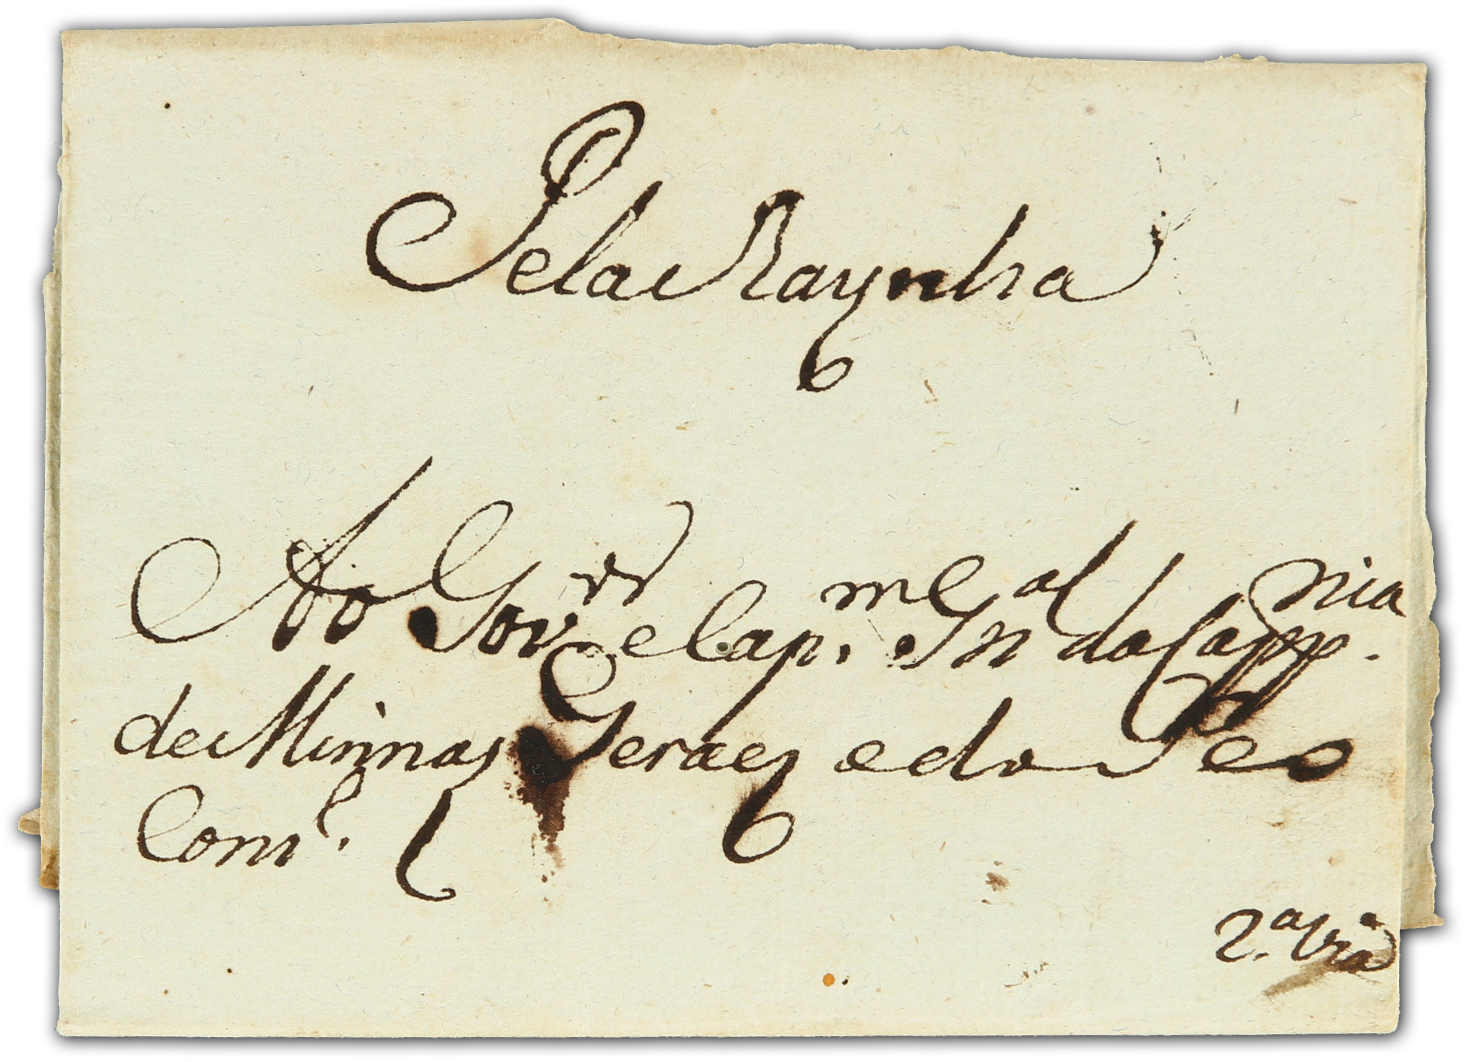 Pela Raynha
Ao Gov.ᵒʳ e Cap.ᵐ Gn.ᵃˡ da Capp.ⁿⁱᵃ
de Minnas Geraes e do Seo
Cons.ᵒ
2.ª via